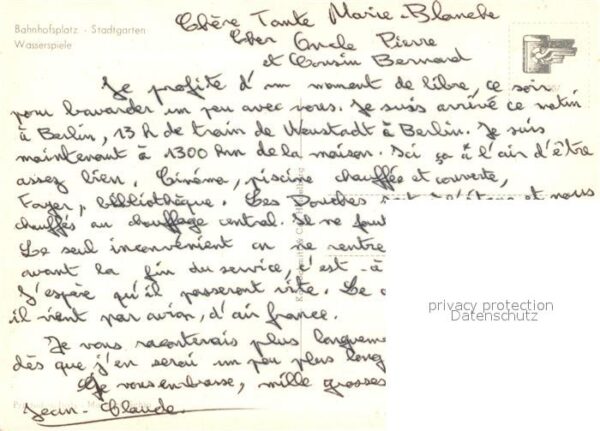 Bahnhofsplatz - Stadtgarten
Wasserspiele
Chère Tante Marie-Blanche
Cher Oncle Pierre
et Cousin Bernard
Je profite d'un moment de libre, ce soir
pour bavarder un peu avec vous. Je suis arrivé ce matin
à Berlin, 13 h de train de Neustadt à Berlin. Je suis
maintenant à 1300 km de la maison. Ici ça à l'air d'être
assez bien. Cinéma, piscine chauffée et couverte,
Foyer, bibliothèque. Les Douches et nous
chauffés au chauffage central. Il ne faut
Le seul inconvenient on ne rentre
avant la fin du service, c'est-à
J'espère qu'il passeront vite. Le
il vient par avion, d'air france.
Je vous raconterais plus longueme
dès que j'en serai un peu plus long
Je vous embrasse, mille grosses
Jean-Claude
privacy protection
Datenschutz